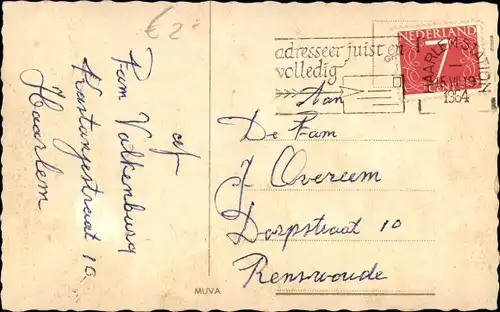 € 2-
af
Fam Valkenburg
Kastanjestraat 10
Haarlem
adresseer juist en
volledig
NEDERLAND
7
HAARLEM-STATION
1964
Aan
De Fam
J Overeem
Dorpstraat 10
Renswoude
MUVA